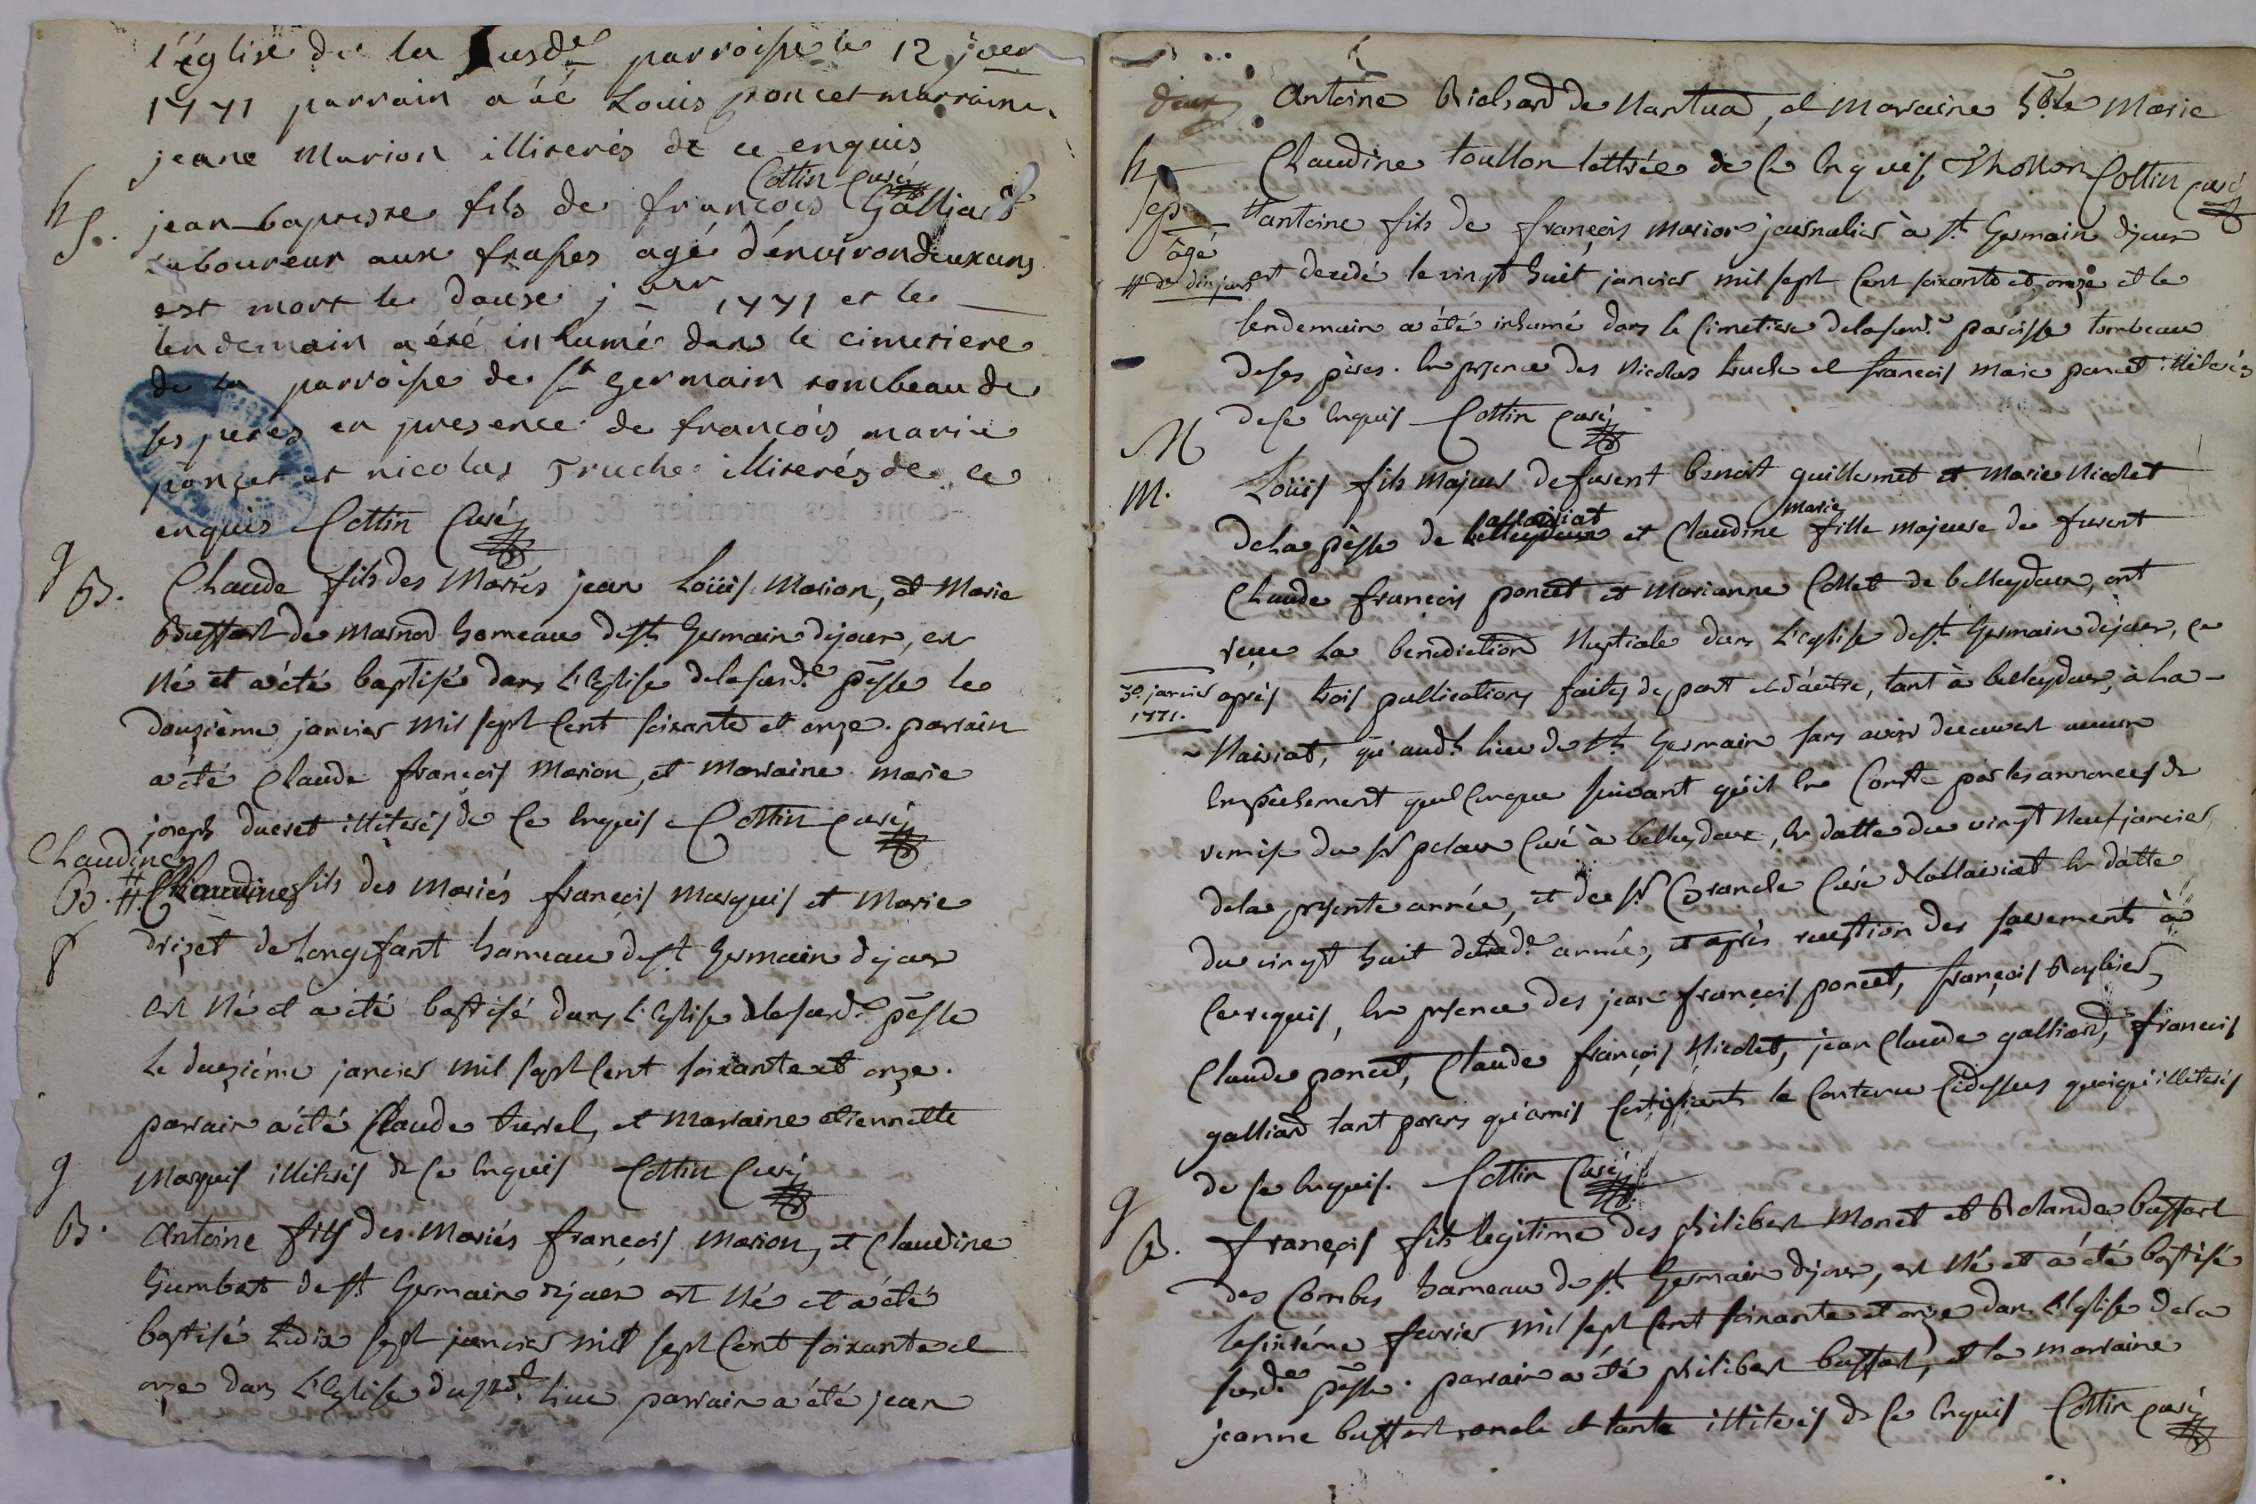 l'église de la susde parroisse le 12 jver
1771 parrain a été Louis poncet marraine
jeane Marion illiterés de ce enquis
Cottin Curé
h
S. jean-baptiste fils de françois Galliard
laboureur aux frasses agé d'énvirondeuxans
est mort le douze jver 1771 et le
lendemain a été inhumé dans le cimetiere
de la parroisse de st germain tombeau de
ses peres en presence de françois marie
ponçet et nicolas Truche illiterés de ce
enquis Cottin Curé
g
B. Claude fils des Mariés jean Loüis Marion, et Marie
Buffart de Marnod hameau de st Germain dejoux, est
Né et a été baptisé dans L'Eglise delasusde. pesse le
douzième janvier mil sept Cent soixante et onze. parrain
a été Claude françois Marion, et Marraine marie
joseph ducret illiterés de Ce Enquis Cottin Curé
Claudine
B. # Claudine fils des Mariés françois Marquis et Marie
f drizet de Longefant hameau de st Germain dejoux
Est Né et a été baptisé dans L'Eglise delasusde. pesse
le douziéme janvier mil sept Cent soixante et onze.
parrain a été Claude turrel, et Marraine etiennette
g Marquis illiterés de Ce Enquis Cottin Curé
B. Antoine fils des Mariés françois Marion, et Claudine
Humbert de st Germain dejoux est Né et a été
baptisé Ledix sept janvier mil sept Cent soixante et
onze dans L'Eglise dususd. lieu parrain a été jean
deux Antoine Richard de Nantua, et Maraine Marie
h Claudine toullon lettrée de Ce Enquis, Thollon Cottin Curé
Sep antoine fils de françois Marion journalier à st Germain dejoux
âgé
# de dix jours est decedé le vingt huit janvier mil sept Cent soixante et onze et le
lendemain a été inhumé dans le Cimetiere delasusde. paroisse tombeau
deses pères. En presence des Nicolas truche et françois Marie poncet illiterés
dece Enquis Cottin Curé
M
M. Loüis fils Majeur defeuent benoit guillermet et Marie Nicolet
Lallaisiat marie
dela pesse de belleydoux et Claudine fille majeure de fuent
Claude françois poncet et Marianne Collet de belleydoux, ont
reçue La benediction Nuptiale dans L'eglise dest Germain dejoux, ce
30. janvier
1771. aprés trois publications faites de part et d'autre, tant à belleydoux, à La-
-llaisiat, qu'audt. lieu de st Germain sans avoir decouvert aucun
Empêchement quel Conque suivant qu'il En Conste par les annonces de
remise du sr Curé à belleydoux, En datte du vingt Neuf janvier
dela presente année, et du sr Curé delallaisiat En datte
du vingt huit deladte. année, et aprés reception des serments à
Ce requis, En presence des jean françois poncet, françois
Claude poncet, Claude françois Nicolet, jean Claude galliard, françois
galliard tant parens qu'amis Certifiants le Contenu Cidessus quoiqu'illiterés
de Ce Enquis. Cottin Curé
g
B. françois fils legitime des philibert Monet et Rolande buffart
des Combes hameau de st Germain dejoux, est Né et a été baptisé
lesixiéme fevrier mil sept Cent soixante et onze dans L'Eglise dela
susde. pesse. parrain a été philibert buffart, et la marraine
jeanne buffart oncle et tante illiterés de Ce Enquis Cottin Curé